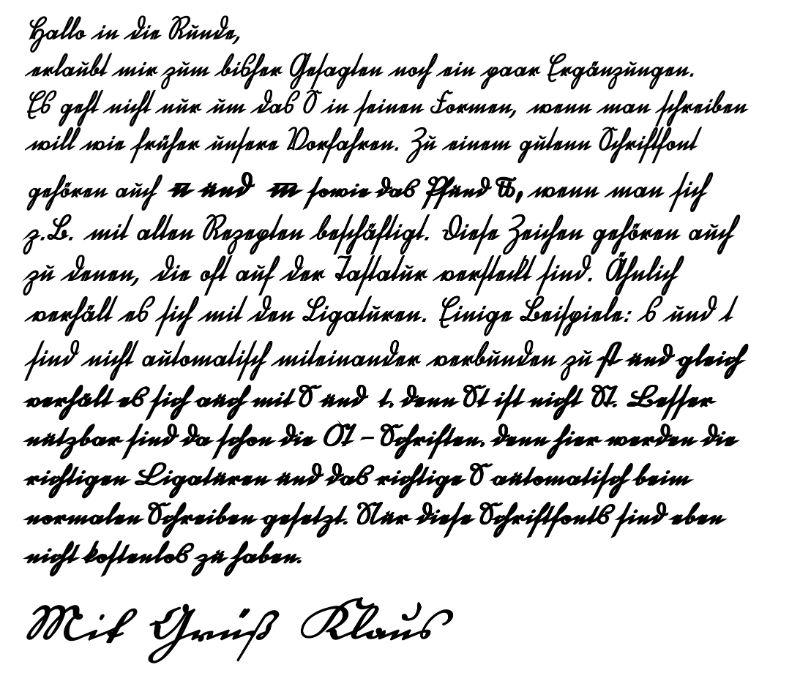 Hallo in die Runde,
erlaubt mir zum bisher Gesagten noch ein paar Ergänzungen.
Es geht nicht nur um das S in seinen Formen, wenn man schreiben
will wie früher unsere Vorfahren. Zu einem gutenn Schriftfont
gehören auch n und m sowie das Pfund, wenn man sich
z.B. mit alten Rezepten beschäftigt. Diese Zeichen gehören auch
zu denen, die oft auf der Tastatur versteckt sind. Ähnlich
verhält es sich mit den Ligaturen. Einige Beispiele: s und t
sind nicht automatisch miteinander verbunden zu st und gleich
verhält es sich auch mit S und t. denn St ist nicht St. Besser
nutzbar sind da schon die OT - Schriften. denn hier werden die
richtigen Ligaturen und das richtige S automatisch beim
normalen Schreiben gesetzt. Nur diese Schriftfonts sind eben
nicht kostenlos zu haben.
Mit Gruß Klaus